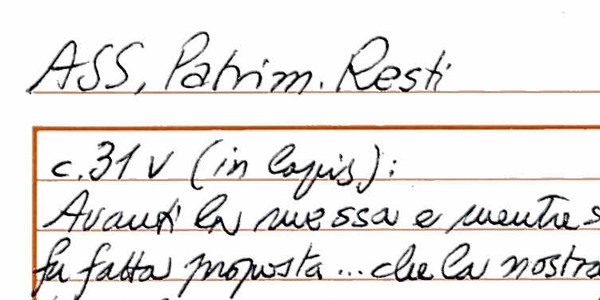 ASS, Patrim. Resti
c. 31 v (in lapis):
Avanti la messa e mentre s
fu fatta proposta... che la nostra